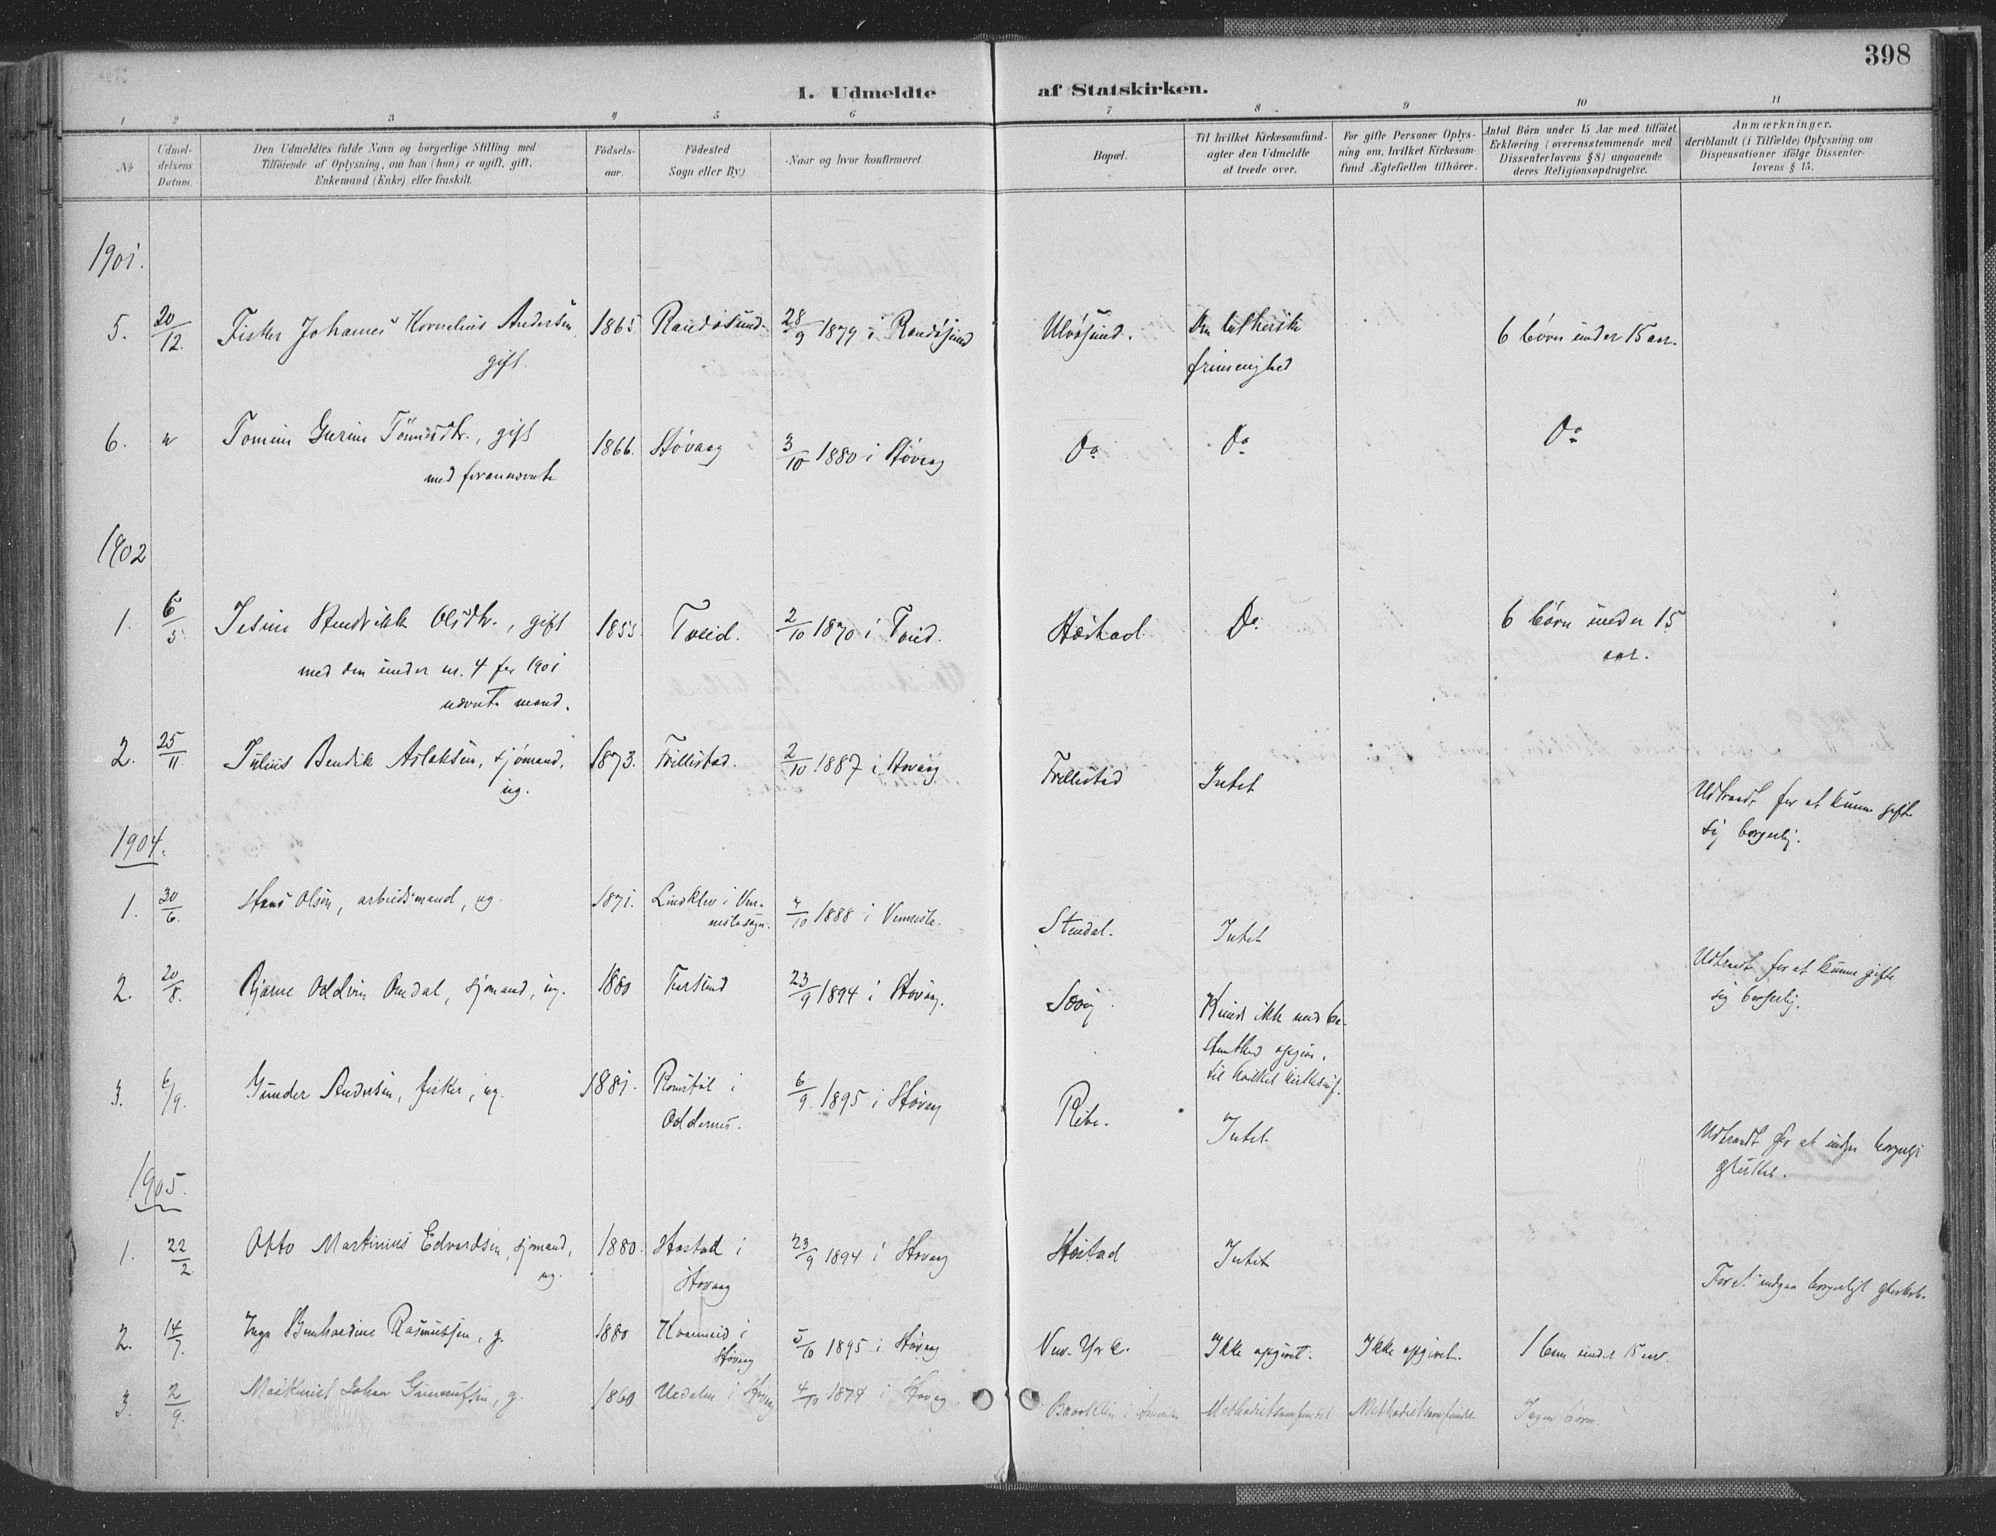 398
I. Udmeldte af Statskirken.
1 2 3 4 5 6 7 8 9 10 11
No
Udmel-
delsens
Datum.
Den Udmeldtes fulde Navn og borgerlige Stilling med
Tilföiende af Oplysning, om han (hun) er ugift, gift,
Enkemand (Enke) eller fraskilt.
Födsels-
aar.
Födested
Sogn eller By)
Naar og hvor konfirmeret.
Bopæl.
Til hvilket Kirkesamfund
agter den Udmeldte
at træde over.
For gifte Personer Oplys-
ning om, hvilket Kirkesam-
fund Ægtefællen tilhörer.
Antal Børn under 15 Aar med tilföiet
Erklæring (overensstemmende med
Dissenterlovens § 8) angaaende
deres Religionsopdragelse.
Anmærkninger.
deriblandt (i Tilfælde) Oplysning om
Dispensationer ifölge Dissenter-
lovens § 15.
1901.
5. 20/12. Fisker Johannes Kornelius Andersen 1865. Randøsund. 28/9 1879 i Randøsund Ulvøsund. Den lutherske 6 børn under 15 aar.
gift. frimenighed
6. " Tomine Gurine Tønnesdtr., gift 1866. Høvaag 3/10 1880 i Høvaag Do Do Do
med forannævnte
1902
1. 6/5 Olsdtr., gift 1855 Tveid. 2/10 1870 i Tveid. Hæstad Do 6 børn under 15
med den under nr. 4 for 1901 aar.
nævnte mand.
2. 25/11 Julius Bendik Aslaksen, sjømand, 1873. Trællestad. 2/10 1887 i Høvaag Trællestad Intet
ug. Udtraadt for at kunne gifte
sig borgerlig.
1904.
1. 30/6. Hans Olsen, arbeidsmand, ug. 1871. Lindklev i Ven-
neslasogn. /10 1888 i Vennesla. Stendal. Intet
Udtraadt for at kunne gifte
sig borgerlig.
2. 20/8. Bjarne Oddvin Omdal, sjømand, ug. 1880 23/9 1894 i Høvaag. Sævig. Kunde ikke med be-
stemthed opgive,
til hvilket kirkesamf.
3. 6/9. Gunder Andersen, fisker, ug. 1881. Romstøl i
Oddernes. 6/9 1895 i Høvaag Ribe. Intet
Udtraadt for at indgaa borgerligt
gteskab.
1905.
1. 22/2 Otto Martinius Edvardsen, sjømand, 1880. Hæstad i 23/9 1894 i Høvaag Hæstad Intet
ug. Høvaag
For at indgaa borgerligt gteskab.
2. 14/7. Inga Bernhardine Rasmussen, g. 1880 Kvanneid i 5/10 1895 i Høvaag New-York. Ikke opgivet. Ikke opgivet. 1 barn under 15 aar.
Høvaag
3. 2/9. Maskinist Johan Gunnufsen, g. 1860 Uedalen i Høvaag 4/10 1874 i Høvaag Brooklin i Amerika Methodistsamfundet Methodistsamfundet. Ingen børn.